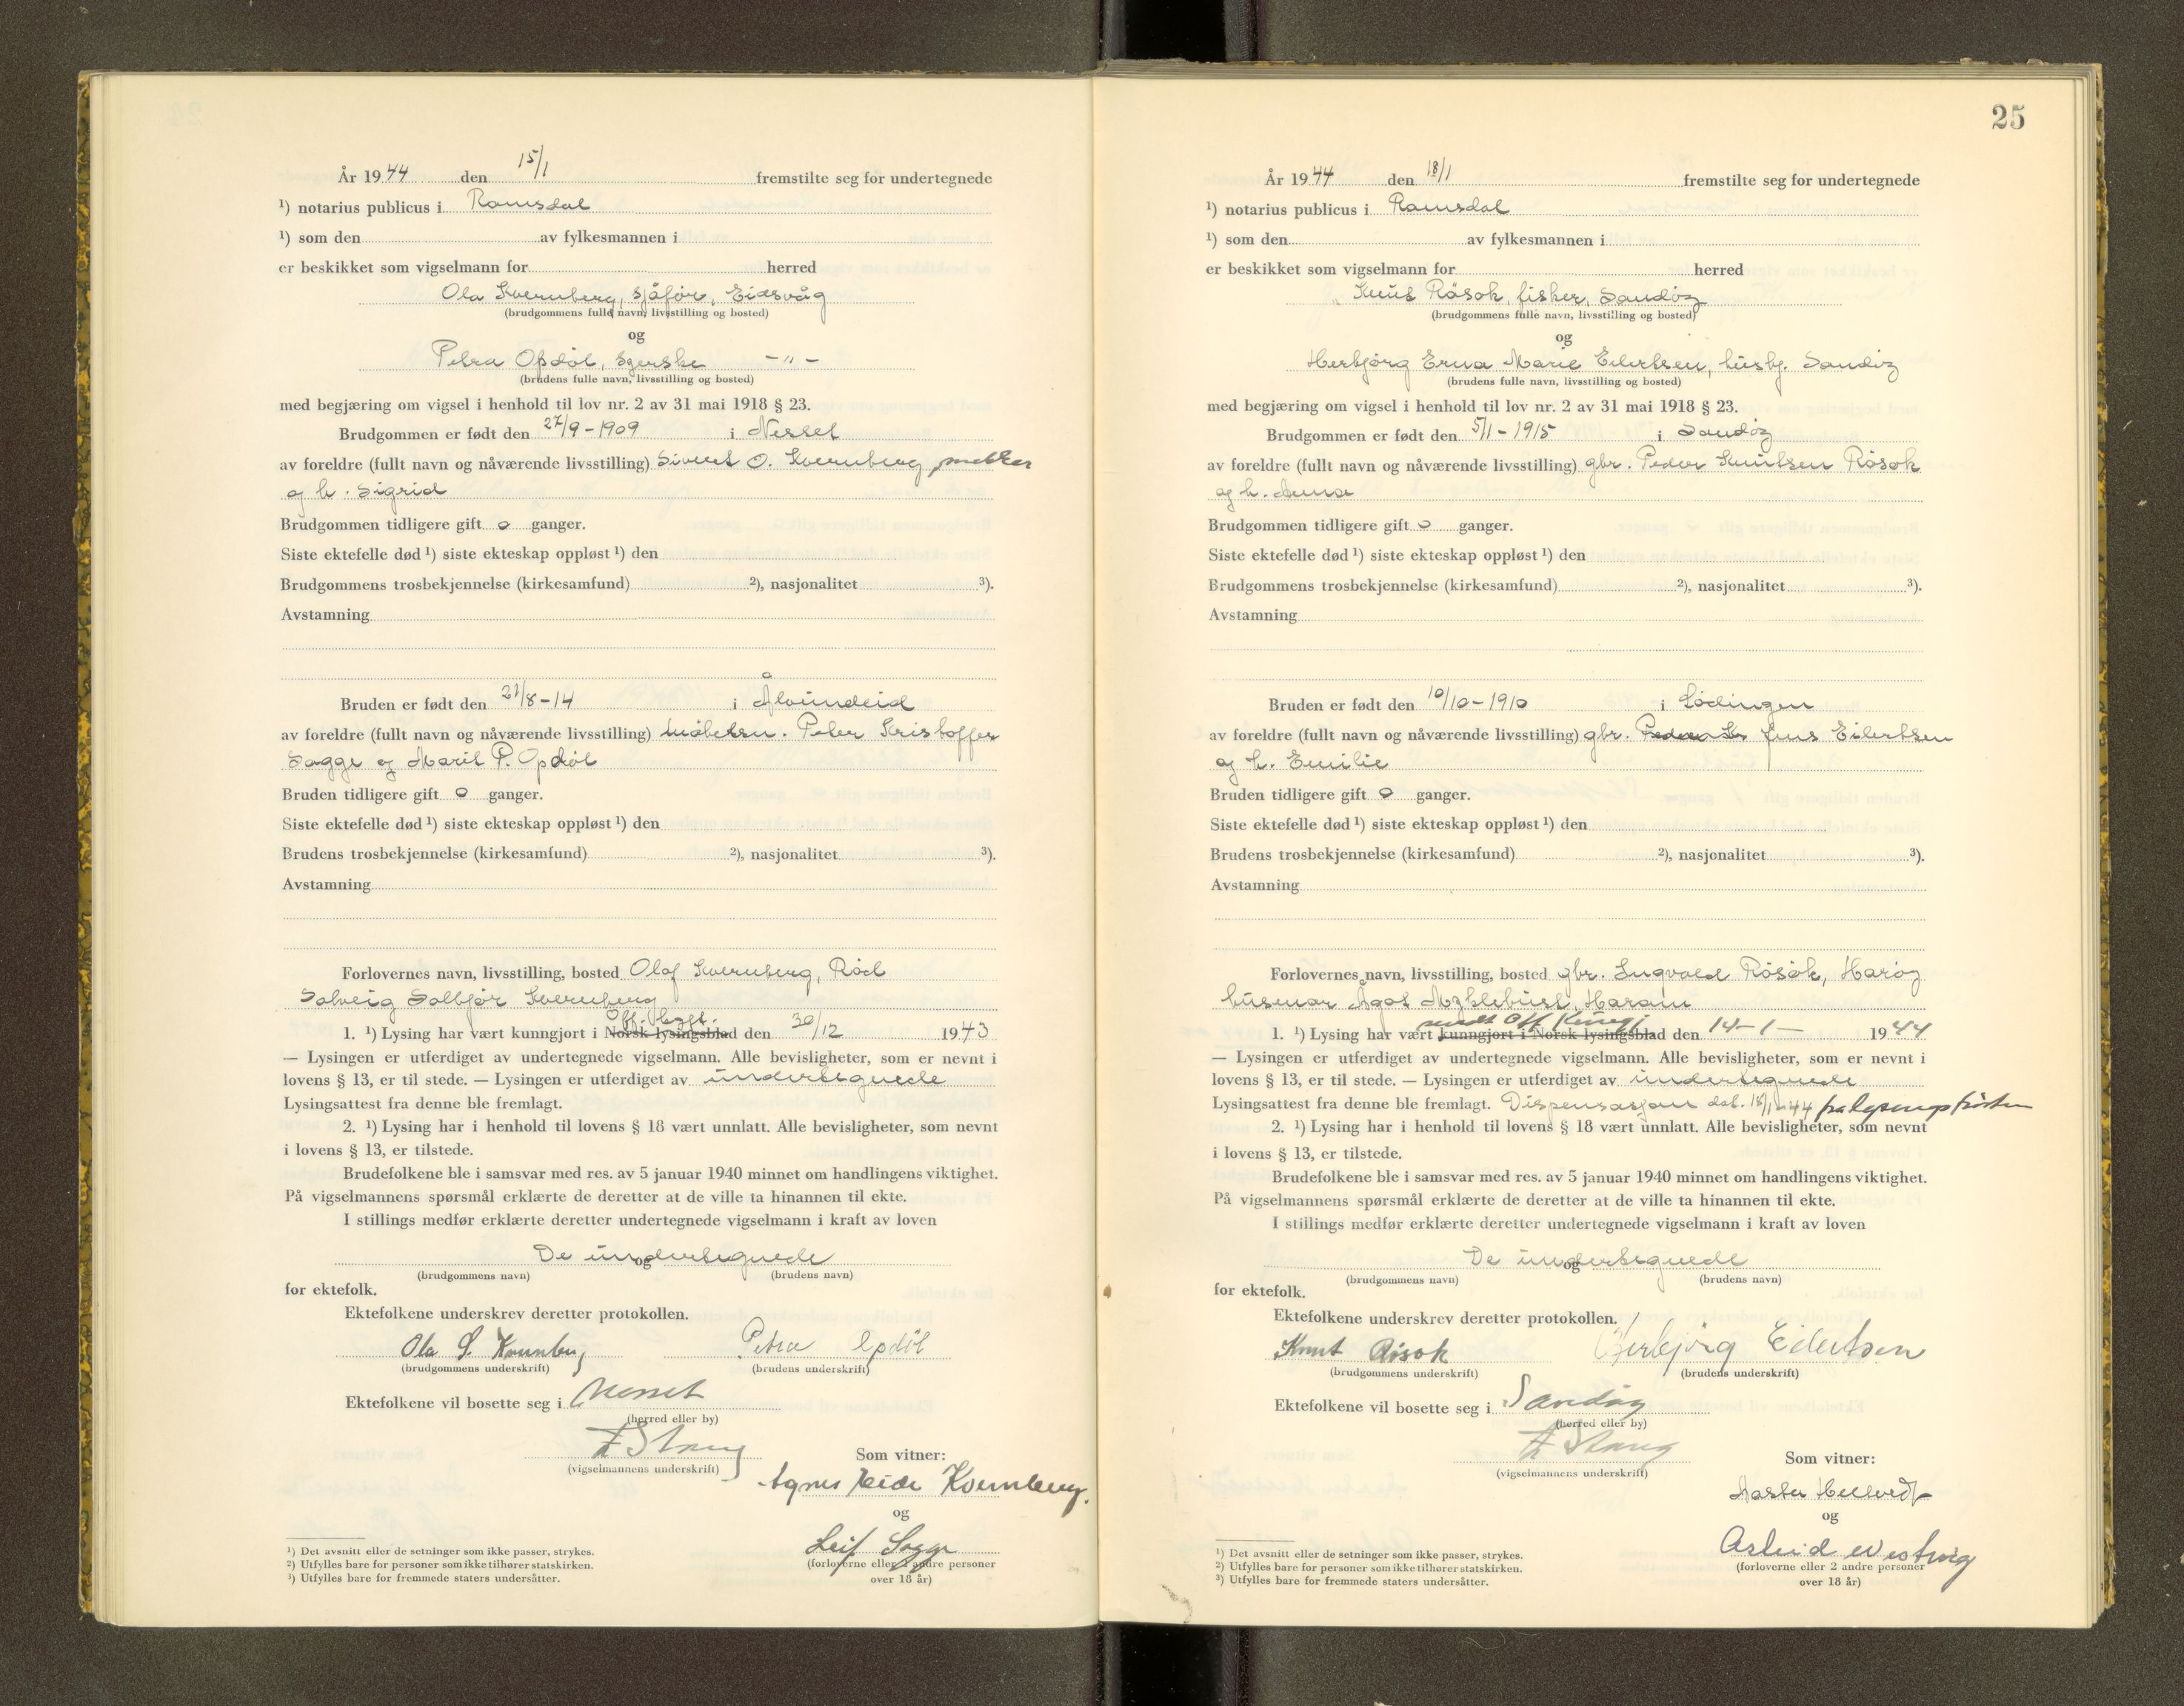 År 1944 den 15/1 fremstilte seg for undertegnede
¹) notarius publicus i Romsdal
¹) som den av fylkesmannen i
er beskikket som vigselmann for herred
Ola Kvernberg, sjåfør, Eidsvåg
(brudgommens fulle navn, livsstilling og bosted)
og
Petra Opdøl, syerske -"-
(brudens fulle navn, livsstilling og bosted)
med begjæring om vigsel i henhold til lov nr. 2 av 31 mai 1918 § 23.
Brudgommen er født den 27/9-1909 i Nesset
av foreldre (fullt navn og nåværende livsstilling) Sivert O. Kvernberg, snekker
og h. Sigrid
Brudgommen tidligere gift 0 ganger.
Siste ektefelle død ¹) siste ekteskap oppløst ¹) den
Brudgommens trosbekjennelse (kirkesamfund) ²), nasjonalitet ³).
Avstamning
Bruden er født den 21/8-14 i Ålvundeid
av foreldre (fullt navn og nåværende livsstilling) Peter Kristoffer
Sogge og Marit P. Opdøl
Bruden tidligere gift 0 ganger.
Siste ektefelle død ¹) siste ekteskap oppløst ¹) den
Brudens trosbekjennelse (kirkesamfund) ²), nasjonalitet ³).
Avstamning
Forlovernes navn, livsstilling, bosted Olaf Kvernberg, Rød
Solveig Solbjør Kvernberg
Off.
1. ¹) Lysing har vært kunngjort i Norsk lysingsblad den 30/12 1943
— Lysingen er utferdiget av undertegnede vigselmann. Alle bevisligheter, som er nevnt i
lovens § 13, er til stede. — Lysingen er utferdiget av undertegnede
Lysingsattest fra denne ble fremlagt.
2. ¹) Lysing har i henhold til lovens § 18 vært unnlatt. Alle bevisligheter, som nevnt
i lovens § 13, er tilstede.
Brudefolkene ble i samsvar med res. av 5 januar 1940 minnet om handlingens viktighet.
På vigselmannens spørsmål erklærte de deretter at de ville ta hinannen til ekte.
I stillings medfør erklærte deretter undertegnede vigselmann i kraft av loven
De undertegnede
og
(brudgommens navn) (brudens navn)
for ektefolk.
Ektefolkene underskrev deretter protokollen.
Ola S. Kvernberg Petra Opdøl
(brudgommens underskrift) (brudens underskrift)
Ektefolkene vil bosette seg i Nesset
(herred eller by)
Stang
(vigselmannens underskrift)
Som vitner:
Agnes Heide Kvernberg.
og
Leif Sogge
(forloverne eller 2 andre personer
over 18 år)
¹) Det avsnitt eller de setninger som ikke passer, strykes.
²) Utfylles bare for personer som ikke tilhører statskirken.
³) Utfylles bare for fremmede staters undersåtter.
25
År 1944 den 18/1 fremstilte seg for undertegnede
¹) notarius publicus i Romsdal
¹) som den av fylkesmannen i
er beskikket som vigselmann for herred
Knut Røsok, fisker, Sandøy
(brudgommens fulle navn, livsstilling og bosted)
og
Herbjørg Erna Marie Eilertsen, husbj. Sandøy
(brudens fulle navn, livsstilling og bosted)
med begjæring om vigsel i henhold til lov nr. 2 av 31 mai 1918 § 23.
Brudgommen er født den 5/1-1915 i Sandøy
av foreldre (fullt navn og nåværende livsstilling) gbr. Peder Knutsen Røsok
og h. Anna
Brudgommen tidligere gift 0 ganger.
Siste ektefelle død ¹) siste ekteskap oppløst ¹) den
Brudgommens trosbekjennelse (kirkesamfund) ²), nasjonalitet ³).
Avstamning
Bruden er født den 10/10-1910 i Lødingen
av foreldre (fullt navn og nåværende livsstilling) gbr. Jens Eilertsen
og h. Emilie
Bruden tidligere gift 0 ganger.
Siste ektefelle død ¹) siste ekteskap oppløst ¹) den
Brudens trosbekjennelse (kirkesamfund) ²), nasjonalitet ³).
Avstamning
Forlovernes navn, livsstilling, bosted gbr. Ingvald Røsok, Harøy
husmor Ågot Myklebust, Haram
sendt Off Kungj
1. ¹) Lysing har vært kunngjort i Norsk lysingsblad den 14-1- 1944
— Lysingen er utferdiget av undertegnede vigselmann. Alle bevisligheter, som er nevnt i
lovens § 13, er til stede. — Lysingen er utferdiget av undertegnede
Lysingsattest fra denne ble fremlagt. Dispensasjon dat. 18/1-44 fra lysingsfristen
2. ¹) Lysing har i henhold til lovens § 18 vært unnlatt. Alle bevisligheter, som nevnt
i lovens § 13, er tilstede.
Brudefolkene ble i samsvar med res. av 5 januar 1940 minnet om handlingens viktighet.
På vigselmannens spørsmål erklærte de deretter at de ville ta hinannen til ekte.
I stillings medfør erklærte deretter undertegnede vigselmann i kraft av loven
De undertegnede
og
(brudgommens navn) (brudens navn)
for ektefolk.
Ektefolkene underskrev deretter protokollen.
Knut Røsok Herbjørg Eilertsen
(brudgommens underskrift) (brudens underskrift)
Ektefolkene vil bosette seg i Sandøy
(herred eller by)
Stang
(vigselmannens underskrift)
Som vitner:
og
(forloverne eller 2 andre personer
over 18 år)
¹) Det avsnitt eller de setninger som ikke passer, strykes.
²) Utfylles bare for personer som ikke tilhører statskirken.
³) Utfylles bare for fremmede staters undersåtter.